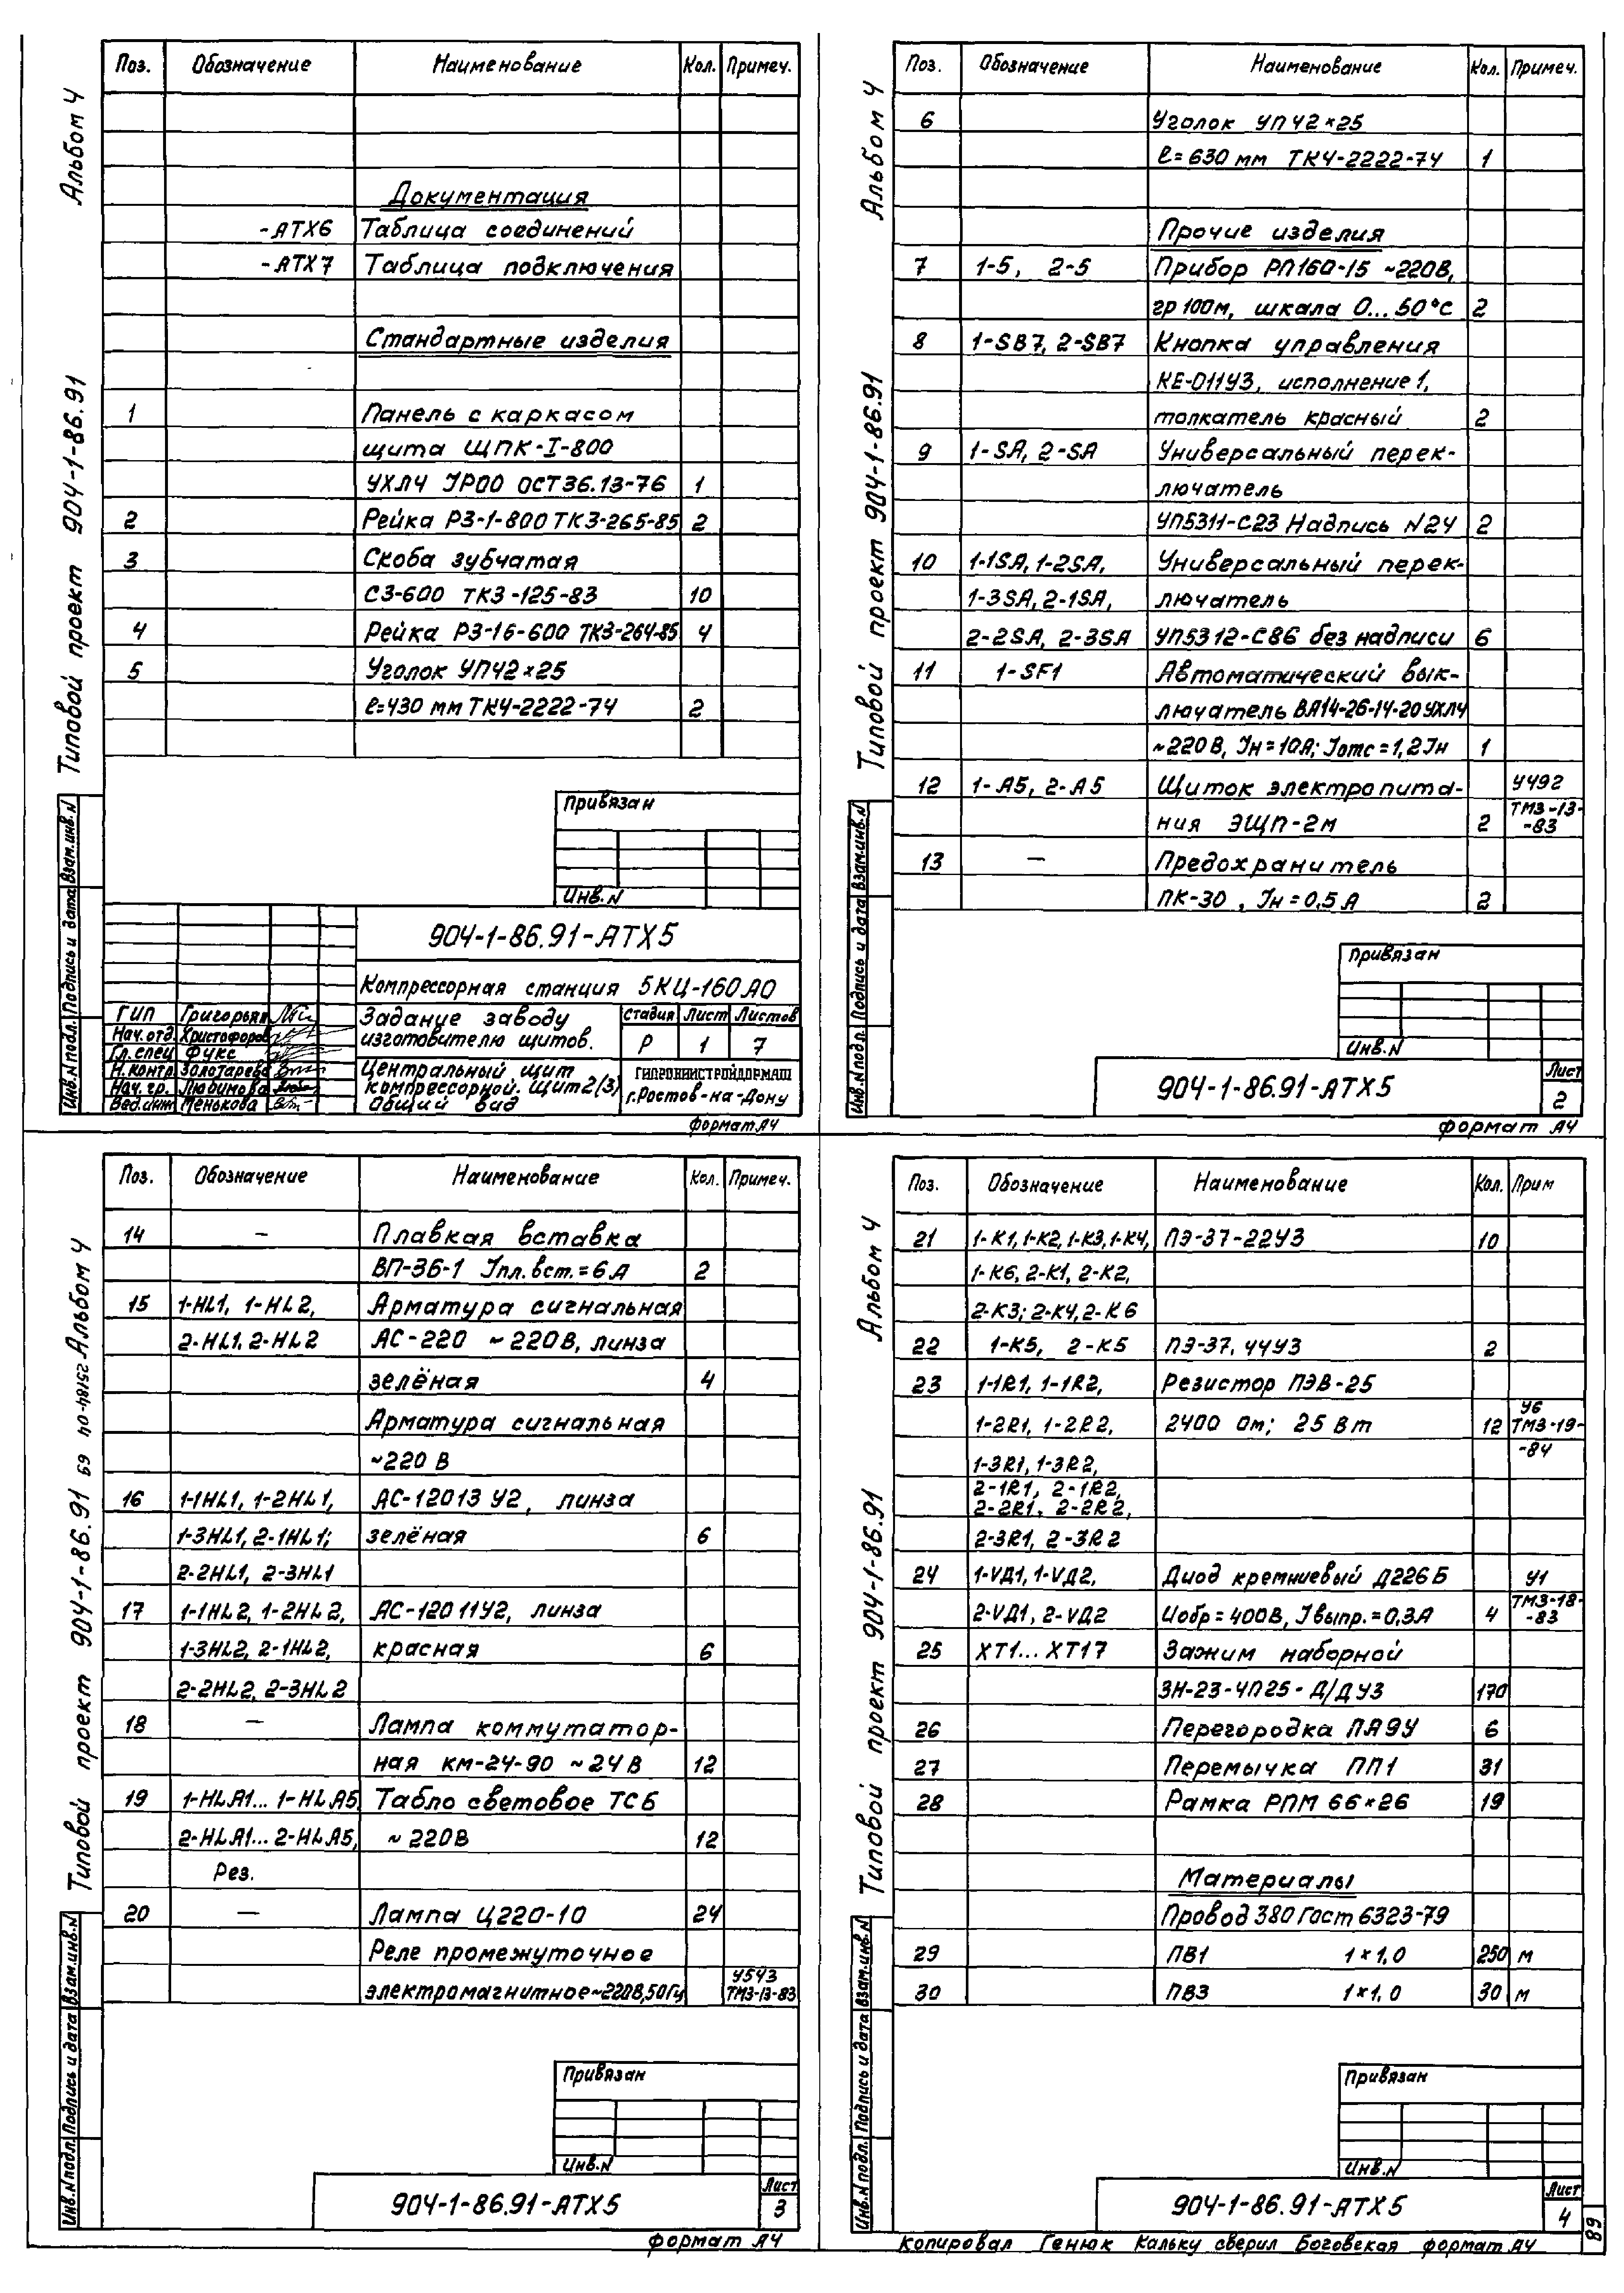 Альбом 4
Типовой проект 904-1-86.91
Поз. Обозначение Наименование Кол. Примеч.
Документация
-АТХ6 Таблица соединений
-АТХ7 Таблица подключения
Стандартные изделия
1 Панель с каркасом
щита ЩПК-I-800
УХЛ4 IP00 ОСТ36.13-76 1
2 Рейка РЗ-1-800 ТКЗ-265-85 2
3 Скоба зубчатая
СЗ-600 ТКЗ-125-83 10
4 Рейка РЗ-16-600 ТКЗ-264-85 4
5 Уголок УП42×25
ℓ=430 мм ТК4-2222-74 2
Привязан
Инв.N
904-1-86.91-АТХ5
Компрессорная станция 5КЦ-160АО
ГИП Григорьян
Нач.отд. Христофоров
Гл.спец Фукс
Н.контр Золотарева
Нач.гр. Любимова
Вед.инж Пенькова
Задание заводу
изготовителю щитов.
Стадия Лист Листов
Р 1 7
Центральный щит
компрессорной. Щит 2(3)
Общий вид
ГИПРОНИИСТРОЙДОРМАШ
г.Ростов-на-Дону
Инв.N подл. Подпись и дата Взам.инв.N
формат А4
Альбом 4
Типовой проект 904-1-86.91
Поз. Обозначение Наименование Кол. Примеч.
6 Уголок УП42×25
ℓ=630 мм ТК4-2222-74 1
Прочие изделия
7 1-5, 2-5 Прибор РП160-15 ~220В,
гр 100м, шкала 0...50°С 2
8 1-SB7, 2-SB7 Кнопка управления
КЕ-011У3, исполнение 1,
толкатель красный 2
9 1-SA, 2-SA Универсальный перек-
лючатель
УП5311-С23 Надпись N24 2
10 1-1SA, 1-2SA, Универсальный перек-
1-3SA, 2-1SA, лючатель
2-2SA, 2-3SA УП5312-С86 без надписи 6
11 1-SF1 Автоматический вык-
лючатель ВА14-26-14-20УХЛ4
~220В, Iн=10А; Iотс=1,2Iн 1
12 1-А5, 2-А5 Щиток электропита- У492
ния ЭЩП-2м 2 ТМ3-13-
-83
13 — Предохранитель
ПК-30, Iн=0,5А 2
Привязан
Инв.N
904-1-86.91-АТХ5
Лист
2
Инв.N подл. Подпись и дата Взам.инв.N
формат А4
25184-04 69 Альбом 4
Типовой проект 904-1-86.91
Поз. Обозначение Наименование Кол. Примеч.
14 — Плавкая вставка
ВП-36-1 Iпл.вст.=6А 2
15 1-HL1, 1-HL2, Арматура сигнальная
2-HL1, 2-HL2 АС-220 ~220В, линза
зелёная 4
Арматура сигнальная
~220 В
16 1-1HL1, 1-2HL1, АС-12013 У2, линза
1-3HL1, 2-1HL1; зелёная 6
2-2HL1, 2-3HL1
17 1-1HL2, 1-2HL2, АС-12011У2, линза
1-3HL2, 2-1HL2, красная 6
2-2HL2, 2-3HL2
18 — Лампа коммутатор-
ная КМ-24-90 ~24В 12
19 1-HLA1... 1-HLA5 Табло световое ТСБ
2-HLA1... 2-HLA5, ~220В 12
Рез.
20 — Лампа Ц220-10 24
Реле промежуточное
электромагнитное~220В,50Гц У543
ТМ3-13-83
Привязан
Инв.N
904-1-86.91-АТХ5
Лист
3
Инв.N подл. Подпись и дата Взам.инв.N
формат А4
Альбом 4
Типовой проект 904-1-86.91
Поз. Обозначение Наименование Кол. Прим
21 1-К1, 1-К2, 1-К3, 1-К4, ПЭ-37-22У3 10
1-К6, 2-К1, 2-К2,
2-К3; 2-К4, 2-К6
22 1-К5, 2-К5 ПЭ-37, 44У3 2
23 1-1R1, 1-1R2, Резистор ПЭВ-25
1-2R1, 1-2R2, 2400 Ом; 25 Вт 12 У6 ТМ3-19-
-84
1-3R1, 1-3R2,
2-1R1, 2-1R2,
2-2R1, 2-2R2,
2-3R1, 2-3R2
24 1-VД1, 1-VД2, Диод кремниевый Д226Б У1
2-VД1, 2-VД2 Uобр=400В, Iвыпр.=0,3А 4 ТМ3-18-
-83
25 ХТ1... ХТ17 Зажим наборной
ЗН-23-4П25-Д/Д У3 170
26 Перегородка ПА9У 6
27 Перемычка ПП1 31
28 Рамка РПМ 66×26 19
Материалы
Провод 380 Гост 6323-79
29 ПВ1 1×1,0 250 м
30 ПВ3 1×1,0 30 м
Привязан
Инв.N
904-1-86.91-АТХ5
Лист
4
Инв.N подл. Подпись и дата Взам.инв.N
89
Копировал Генюк Кальку сверил Боговская формат А4